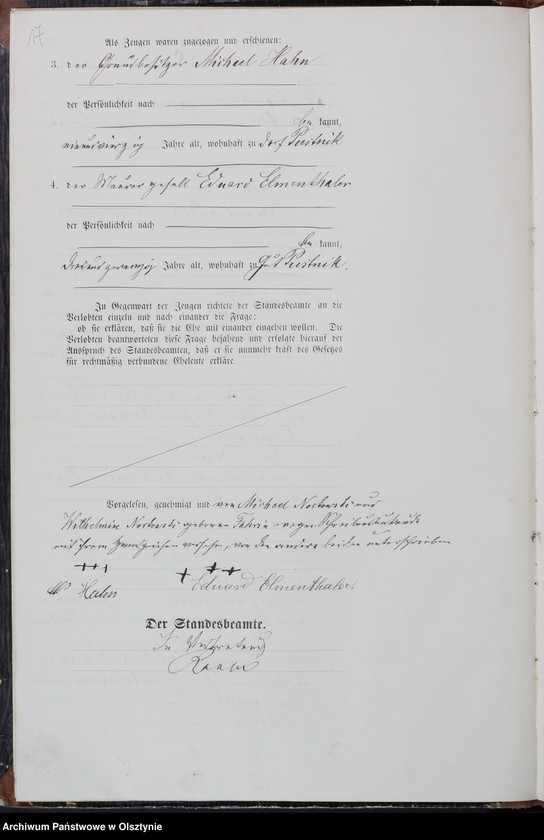 17
Als Zeugen waren zugezogen und erschienen:
3. der Grundbesitzer Michael Hahn
der Persönlichkeit nach
be kannt,
neunundvierzig Jahre alt, wohnhaft zu Dorf Pustnik
4. der Maurergesell Eduard Elmenthaler
der Persönlichkeit nach
be kannt,
Jahre alt, wohnhaft zu Gut Pustnik.
In Gegenwart der Zeugen richtete der Standesbeamte an die
Verlobten einzeln und nach einander die Frage:
ob sie erklären, daß sie die Ehe mit einander eingehen wollen. Die
Verlobten beantworteten diese Frage bejahend und erfolgte hierauf der
Ausspruch des Standesbeamten, daß er sie nunmehr kraft des Gesetzes
für rechtmäßig verbundene Eheleute erkläre.
Vorgelesen, genehmigt und von Michael und
Wilhelmine geborene wegen Schreibensunkunde
mit ihrem Handzeichen versehen, von den andern beiden unterschrieben
+++ + ++
M Hahn Eduard Elmenthaler.
Der Standesbeamte.
In Vertretung
Archiwum Państwowe w Olsztynie